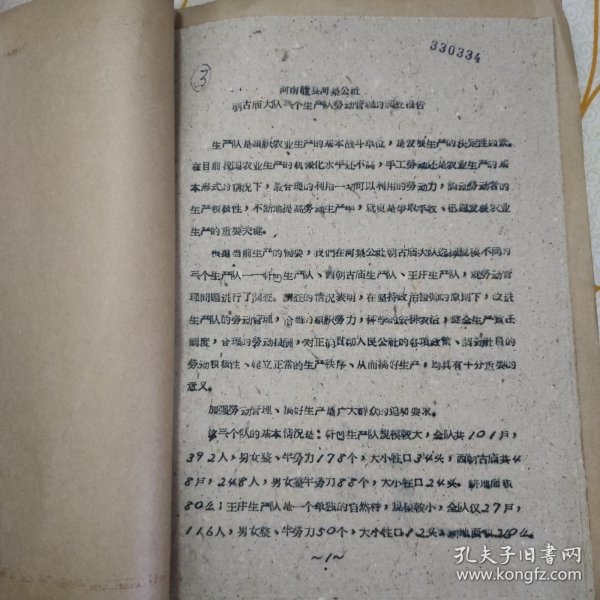 330334
3
河南 县河 公社
朝古庙大队三个生产队劳动管理的调查报告
生产队是组织农业生产的基本战斗单位，是发展生产的决定性因素。
在目前我国农业生产的机械化水平还不高，手工劳动还是农业生产的基
本形式的情况下，最合理的利用一切可以利用的劳动力，调动劳动者的
生产积极性，不断地提高劳动生产率，就更是争取丰收、迅速发展农业
生产的重要关键。
根据当前生产的需要，我们在河 公社朝古庙大队选择规模不同的
三个生产队—— 生产队、西朝古庙生产队、王庄生产队，就劳动管
理问题进行了调查。调查的情况表明，在坚持政治挂帅的原则下，改进
生产队的劳动管理，恰当的组织劳力，科学的安排农活，健全生产责任
制度，合理的劳动报酬，对正确贯彻人民公社的各项政策、调动社员的
劳动积极性、建立正常的生产秩序、从而搞好生产，均具有十分重要的
意义。
加强劳动管理、搞好生产是广大群众的迫切要求。
这三个队的基本情况是： 生产队规模较大，全队共101户，
392人，男女整、半劳力178个，大小牲口34头，西朝古庙共4
8户，248人，男女整半劳力88个，大小牲口24头。耕地面积
80 ；王庄生产队是一个单独的自然村，规模较小，全队仅27户，
116人，男女整、半劳力50个，大小牲口12头，耕地面积
～1～
孔夫子旧书网
www.kongfz.com